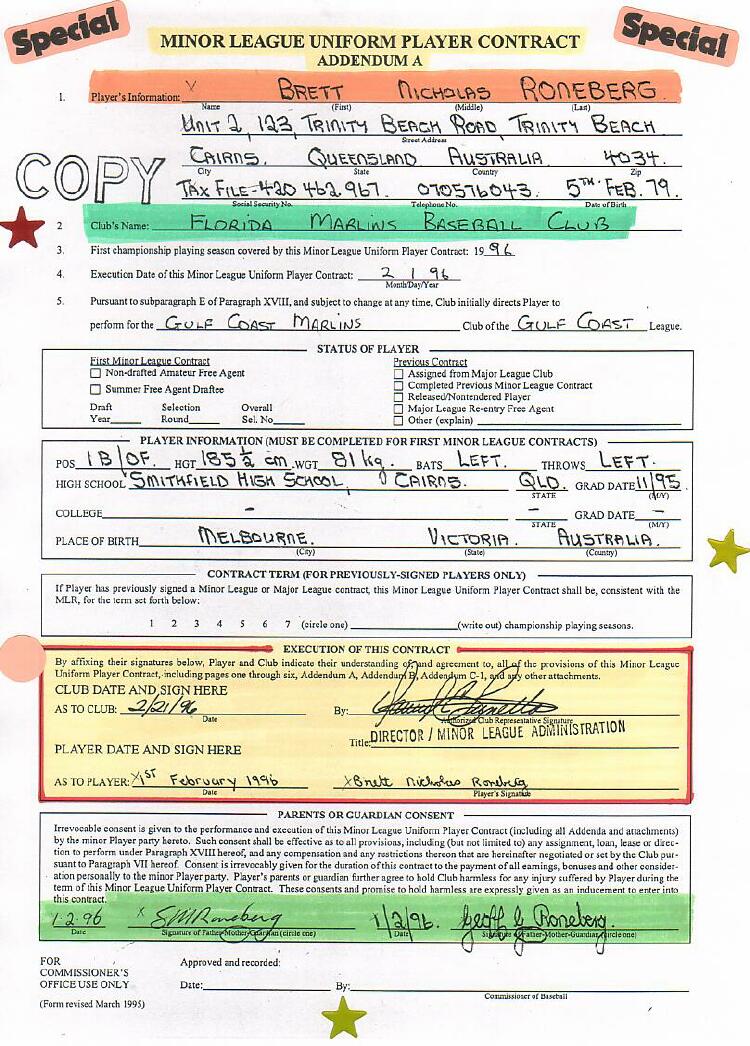 Special
Special
MINOR LEAGUE UNIFORM PLAYER CONTRACT
ADDENDUM A
1. Player's Information: X BRETT NICHOLAS RONEBERG
Name (First) (Middle) (Last)
UNIT 2, 123, TRINITY BEACH ROAD, TRINITY BEACH
Street Address
COPY
CAIRNS. QUEENSLAND AUSTRALIA 4034.
City State Country Zip
TAX FILE-420 462 967. 070576043. 5TH FEB. 79.
Social Security No. Telephone No. Date of Birth
2 Club's Name: FLORIDA MARLINS BASEBALL CLUB
3. First championship playing season covered by this Minor League Uniform Player Contract: 19 96
4. Execution Date of this Minor League Uniform Player Contract: 2 1 96
Month/Day/Year
5. Pursuant to subparagraph E of Paragraph XVIII, and subject to change at any time, Club initially directs Player to
perform for the GULF COAST MARLINS Club of the GULF COAST League.
STATUS OF PLAYER
First Minor League Contract
Non-drafted Amateur Free Agent
Summer Free Agent Draftee
Draft Selection Overall
Year Round Sel. No
Previous Contract
Assigned from Major League Club
Completed Previous Minor League Contract
Released/Nontendered Player
Major League Re-entry Free Agent
Other (explain)
PLAYER INFORMATION (MUST BE COMPLETED FOR FIRST MINOR LEAGUE CONTRACTS)
POS 1B/OF. HGT 185 1/2 cm. WGT 81 kg. BATS LEFT. THROWS LEFT.
HIGH SCHOOL SMITHFIELD HIGH SCHOOL, CAIRNS. QLD. GRAD DATE 11/95
STATE (M/Y)
COLLEGE - - GRAD DATE -
STATE (M/Y)
PLACE OF BIRTH MELBOURNE. VICTORIA. AUSTRALIA.
(City) (State) (Country)
CONTRACT TERM (FOR PREVIOUSLY-SIGNED PLAYERS ONLY)
If Player has previously signed a Minor League or Major League contract, this Minor League Uniform Player Contract shall be, consistent with the
MLR, for the term set forth below:
1 2 3 4 5 6 7 (circle one) (write out) championship playing seasons.
EXECUTION OF THIS CONTRACT
By affixing their signatures below, Player and Club indicate their understanding of, and agreement to, all of the provisions of this Minor League
Uniform Player Contract, including pages one through six, Addendum A, Addendum B, Addendum C-1, and any other attachments.
CLUB DATE AND SIGN HERE
AS TO CLUB: 2/21/96 By:
Date Authorized Club Representative Signature
Title: DIRECTOR / MINOR LEAGUE ADMINISTRATION
PLAYER DATE AND SIGN HERE
AS TO PLAYER: X 1ST February 1996 X Brett Nicholas Roneberg
Date Player's Signature
PARENTS OR GUARDIAN CONSENT
Irrevocable consent is given to the performance and execution of this Minor League Uniform Player Contract (including all Addenda and attachments)
by the minor Player party hereto. Such consent shall be effective as to all provisions, including (but not limited to) any assignment, loan, lease or direc-
tion to perform under Paragraph XVIII hereof, and any compensation and any restrictions thereon that are hereinafter negotiated or set by the Club pur-
suant to Paragraph VII hereof. Consent is irrevocably given for the duration of this contract to the payment of all earnings, bonuses and other consider-
ation personally to the minor Player party. Player's parents or guardian further agree to hold Club harmless for any injury suffered by Player during the
term of this Minor League Uniform Player Contract. These consents and promise to hold harmless are expressly given as an inducement to enter into
this contract.
1-2-96 X SMRoneberg 1/2/96. Geoff G Roneberg.
Date Signature of Father-Mother-Guardian (circle one) Date Signature of Father-Mother-Guardian (circle one)
FOR
COMMISSIONER'S
OFFICE USE ONLY
Approved and recorded:
Date: By:
Commissioner of Baseball
(Form revised March 1995)